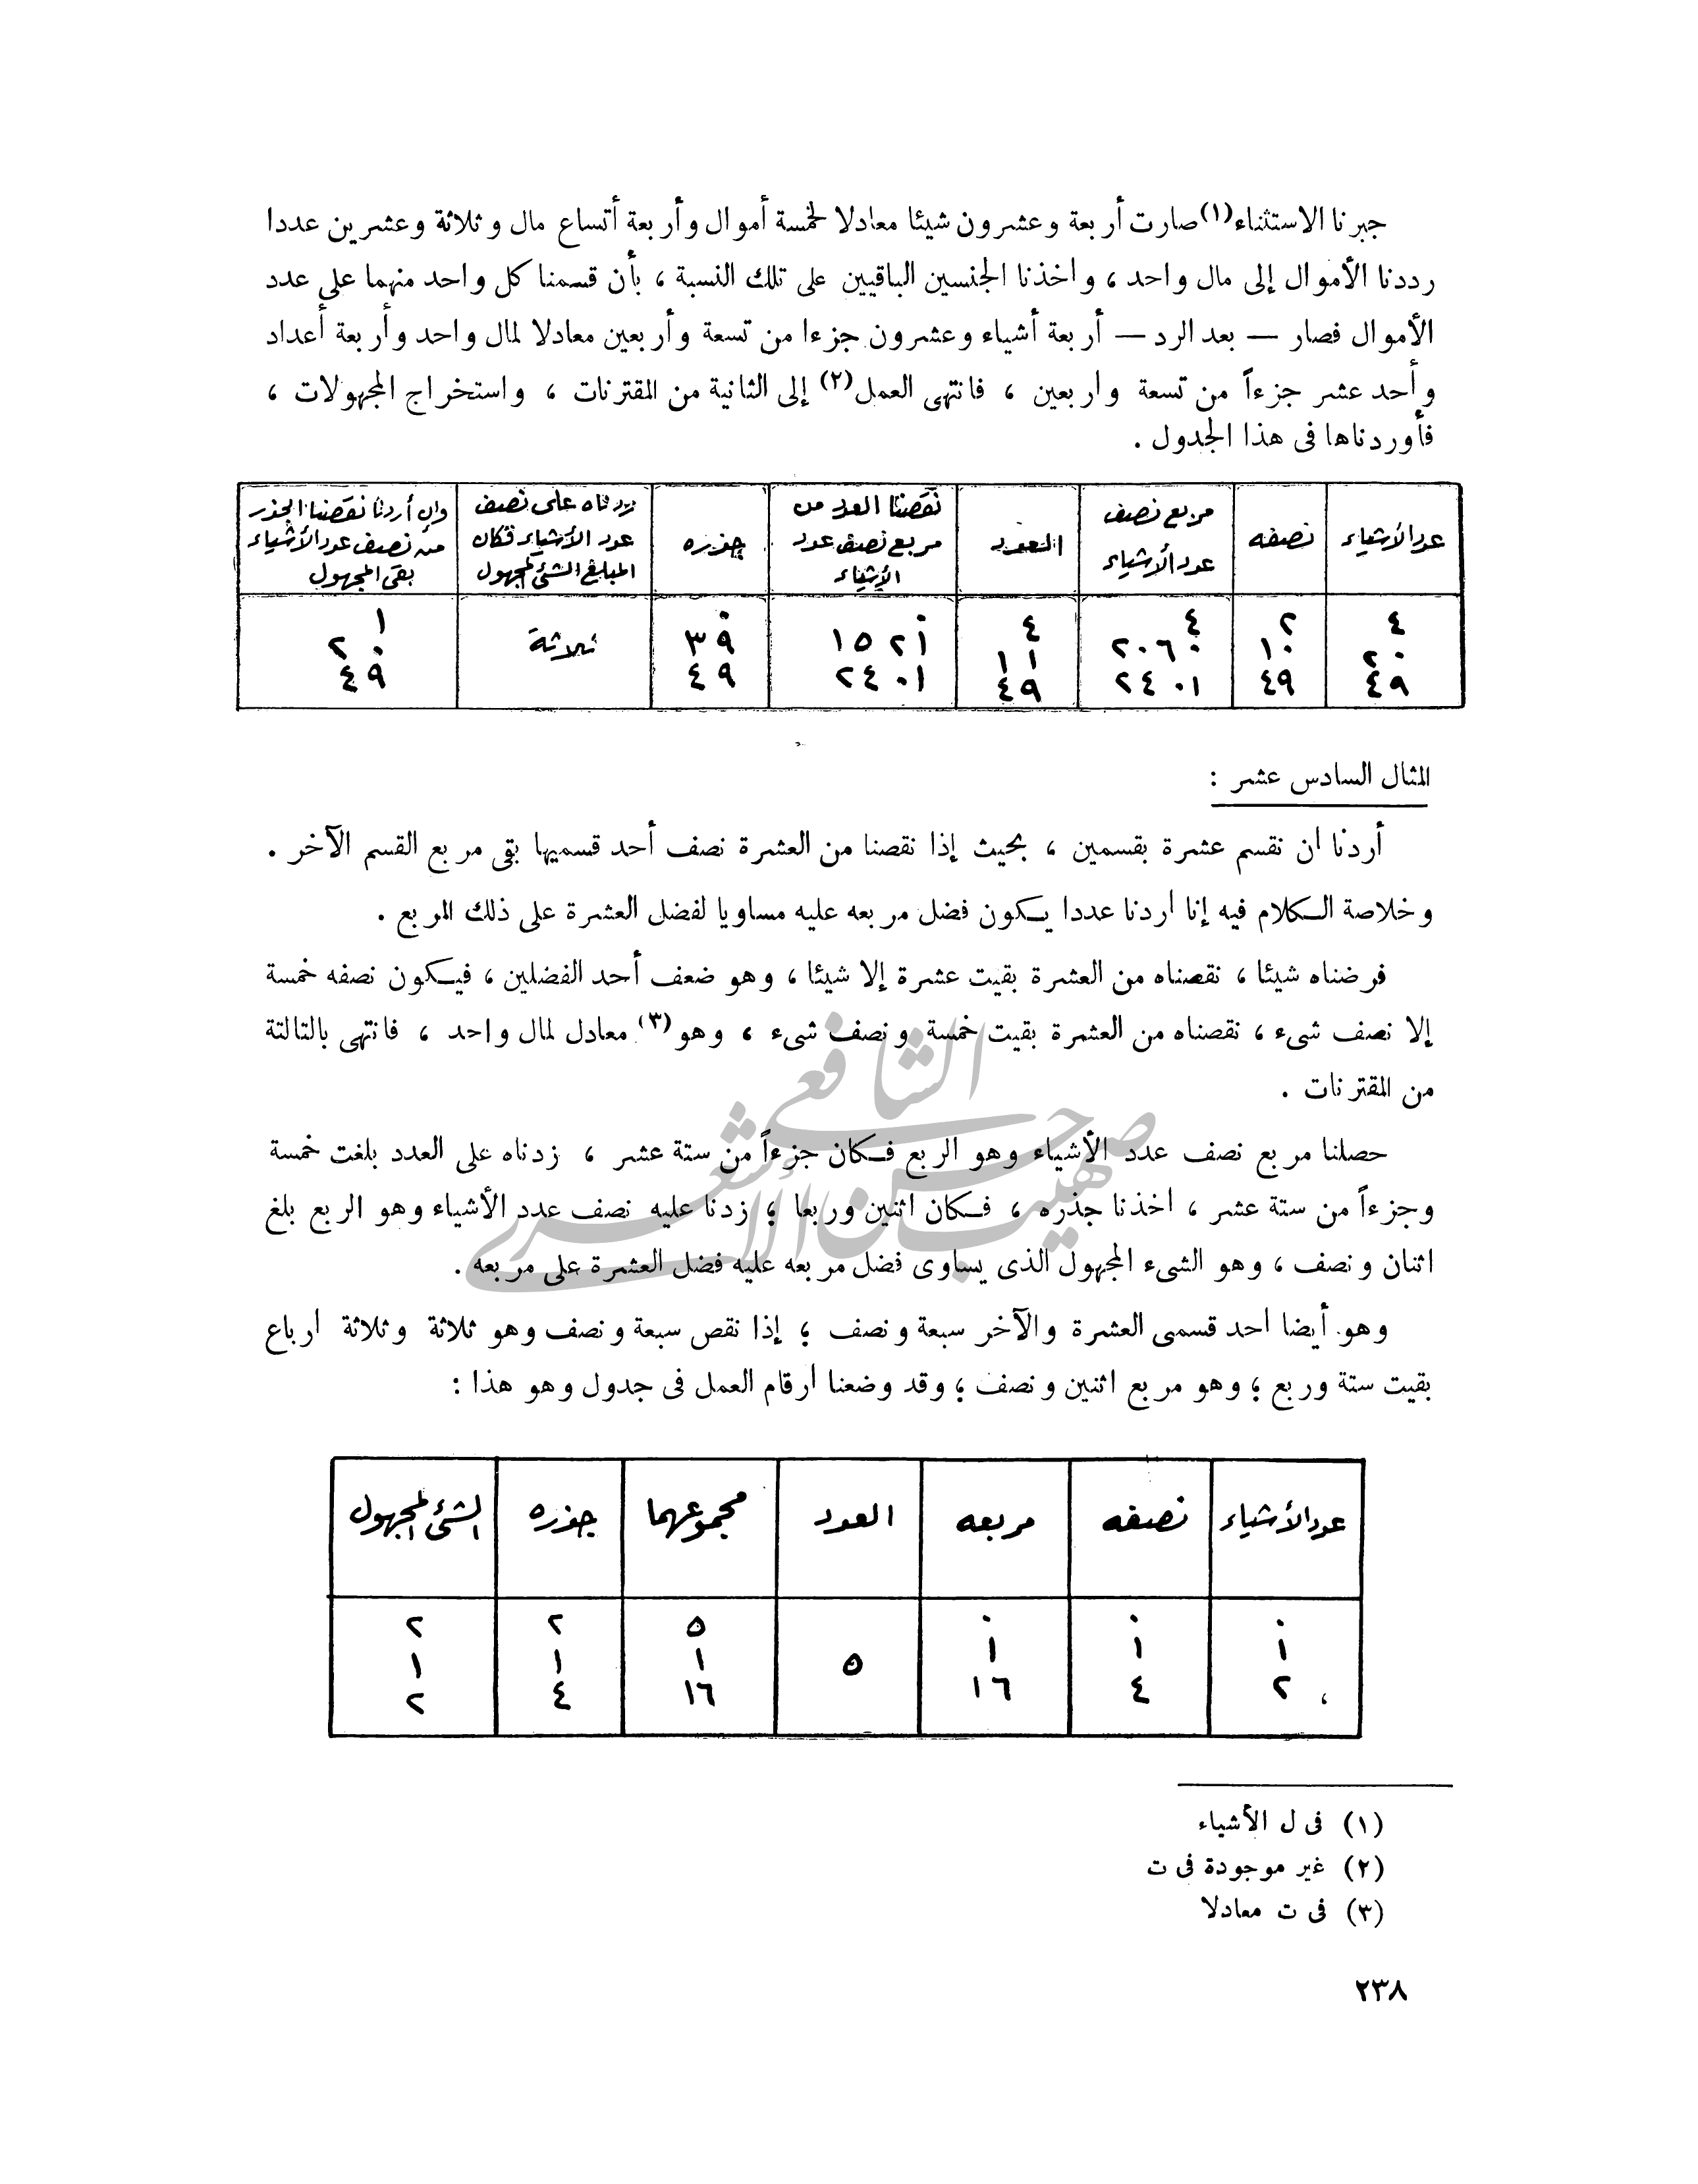 جبرنا الاستثناء(١) صارت أربعة وعشرون شيئا معادلا لخمسة أموال وأربعة أتساع مال وثلاثة وعشرين عددا
رددنا الأموال إلى مال واحد ، واخذنا الجنسين الباقيين على تلك النسبة ، بأن قسمنا كل واحد منهما على عدد
الأموال فصار — بعد الرد — أربعة أشياء وعشرون جزءا من تسعة وأربعين معادلا لمال واحد وأربعة أعداد
وأحد عشر جزءاً من تسعة واربعين ، فانتهى العمل(٢) إلى الثانية من المقترنات ، واستخراج المجهولات ،
فأوردناها فى هذا الجدول .
عدد الأشياء | نصفه | مربع نصف عدد الأشياء | العدد | نقصنا العدد من مربع نصف عدد الأشياء | جذره | زدناه على نصف عدد الأشياء فكان المبلغ الشئ المجهول | وإن أردنا نقصنا الجذر من نصف عدد الأشياء بقى المجهول
٤ ٢٠ ٤٩ | ٢ ١٠ ٤٩ | ٤ ٢٠٦٠ ٢٤٠١ | ٤ ١١ ٤٩ | ٠ ١٥٢١ ٢٤٠١ | ٠ ٣٩ ٤٩ | ثلاثة | ١ ٢٠ ٤٩
المثال السادس عشر :
أردنا ان نقسم عشرة بقسمين ، بحيث إذا نقصنا من العشرة نصف أحد قسميها بقى مربع القسم الآخر .
وخلاصة الكلام فيه إنا اردنا عددا يكون فضل مربعه عليه مساويا لفضل العشرة على ذلك المربع .
فرضناه شيئا ، نقصناه من العشرة بقيت عشرة إلا شيئا ، وهو ضعف أحد الفضلين ، فيكون نصفه خمسة
إلا نصف شىء ، نقصناه من العشرة بقيت خمسة ونصف شىء ، وهو(٣) معادل لمال واحد ، فانتهى بالثالثة
من المقترنات .
حصلنا مربع نصف عدد الأشياء وهو الربع فكان جزءاً من ستة عشر ، زدناه على العدد بلغت خمسة
وجزءاً من ستة عشر ، اخذنا جذره ، فكان اثنين وربعا ؛ زدنا عليه نصف عدد الأشياء وهو الربع بلغ
اثنان ونصف ، وهو الشىء المجهول الذى يساوى فضل مربعه عليه فضل العشرة على مربعه .
وهو أيضا احد قسمى العشرة والآخر سبعة ونصف ؛ إذا نقص سبعة ونصف وهو ثلاثة وثلاثة ارباع
بقيت ستة وربع ؛ وهو مربع اثنين ونصف ؛ وقد وضعنا ارقام العمل فى جدول وهو هذا :
عدد الأشياء | نصفه | مربعه | العدد | مجموعهما | جذره | الشئ المجهول
٠ ١ ٢ | ٠ ١ ٤ | ٠ ١ ١٦ | ٥ | ٥ ١ ١٦ | ٢ ١ ٤ | ٢ ١ ٢
(١) فى ل الأشياء
(٢) غير موجودة فى ت
(٣) فى ت معادلا
٢٣٨
صهيب حسن الشافعي الأشعري